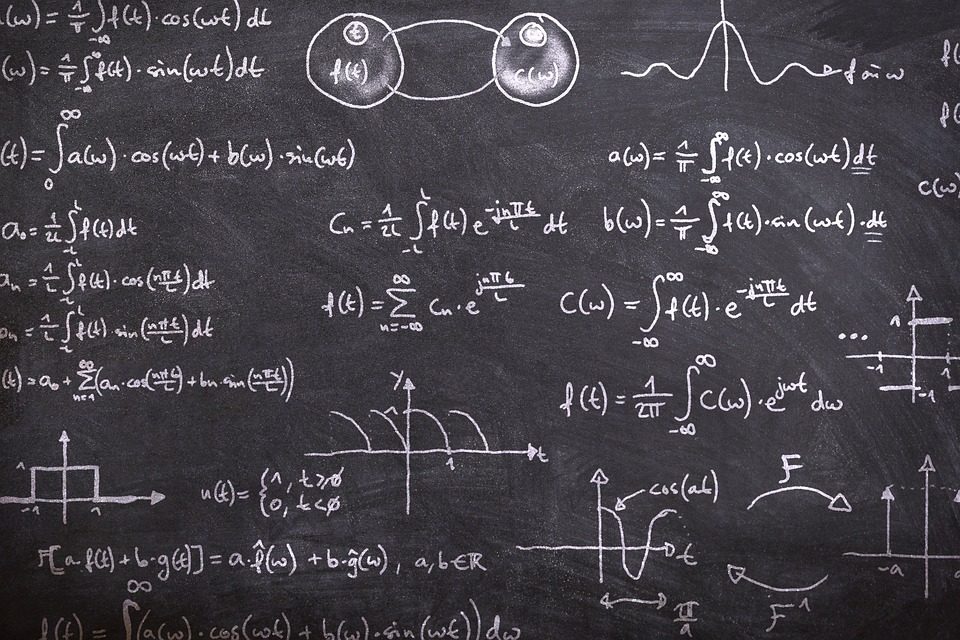 (ω) = 1/π ∫_{-∞} f(t)·cos(ωt) dt
t
f(t)
C(ω)
(ω) = 1/π ∫_{-∞}^{∞} f(t)·sin(ωt) dt
(t) = ∫_0^∞ a(ω)·cos(ωt) + b(ω)·sin(ωt)
a(ω) = 1/π ∫_{-∞}^{∞} f(t)·cos(ωt) dt
C(ω)
a₀ = 1/2L ∫_{-L}^{L} f(t) dt
Cn = 1/2L ∫_{-L}^{L} f(t) e^{-jnπt/L} dt
b(ω) = 1/π ∫_{-∞}^{∞} f(t)·sin(ωt)·dt
an = 1/L ∫_{-L}^{L} f(t)·cos(nπt/L) dt
f(t) = ∑_{n=-∞}^{∞} Cn·e^{jnπt/L}
C(ω) = ∫_{-∞}^{∞} f(t)·e^{-jnπt/L} dt
bn = 1/L ∫_{-L}^{L} f(t)·sin(nπt/L) dt
...
1
-1 1
-1
(t) = a₀ + ∑_{n=1}^{∞} (an·cos(nπt/L) + bn·sin(nπt/L))
f(t) = 1/2π ∫_{-∞}^{∞} C(ω)·e^{jωt} dω
y
1
1
t
1
-1 1
u(t) = {1, t≥0
0, t<0
cos(at)
t
π/a
F
F⁻¹
-a
F[a·f(t) + b·g(t)] = a·f̂(ω) + b·ĝ(ω), a,b∈ℝ
f(t) = ∫^∞ (a(ω)·cos(ωt) + b(ω)·sin(ωt)) dω